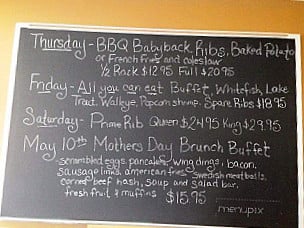 Thursday - BBQ Babyback Ribs, Baked Potato
or French Fries and coleslaw
½ Rack $12.95 Full $20.95
Friday - All you can eat Buffet, Whitefish, Lake
Trout, Walleye, Popcorn shrimp, Spare Ribs $18.95
Saturday - Prime Rib Queen $24.95 King $29.95
May 10th Mothers Day Brunch Buffet
scrambled eggs, pancakes, wing dings, bacon,
sausage links, american fries, Swedish meatballs,
corned beef hash, soup and salad bar,
fresh fruit & muffins $15.95
menupix